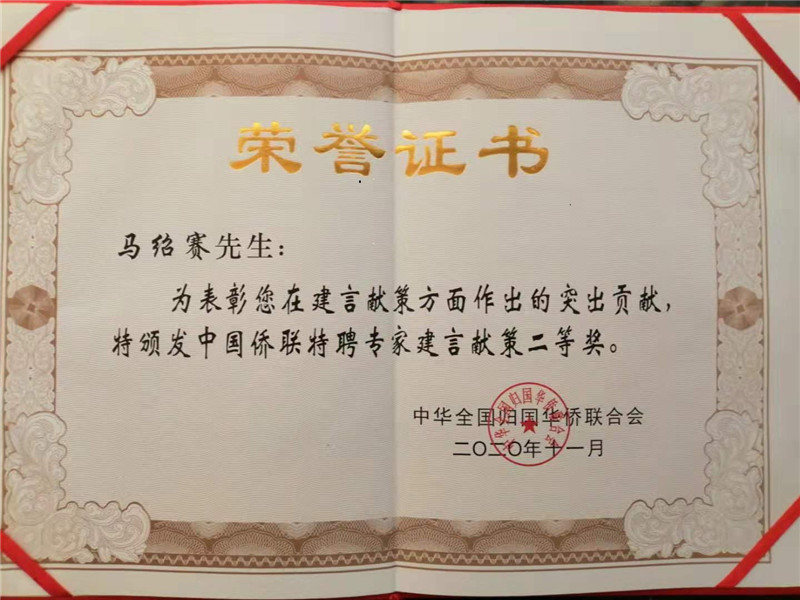 荣誉证书
马绍赛先生：
为表彰您在建言献策方面作出的突出贡献，
特颁发中国侨联特聘专家建言献策二等奖。
中华全国归国华侨联合会
二〇二〇年十一月
中华全国归国华侨联合会